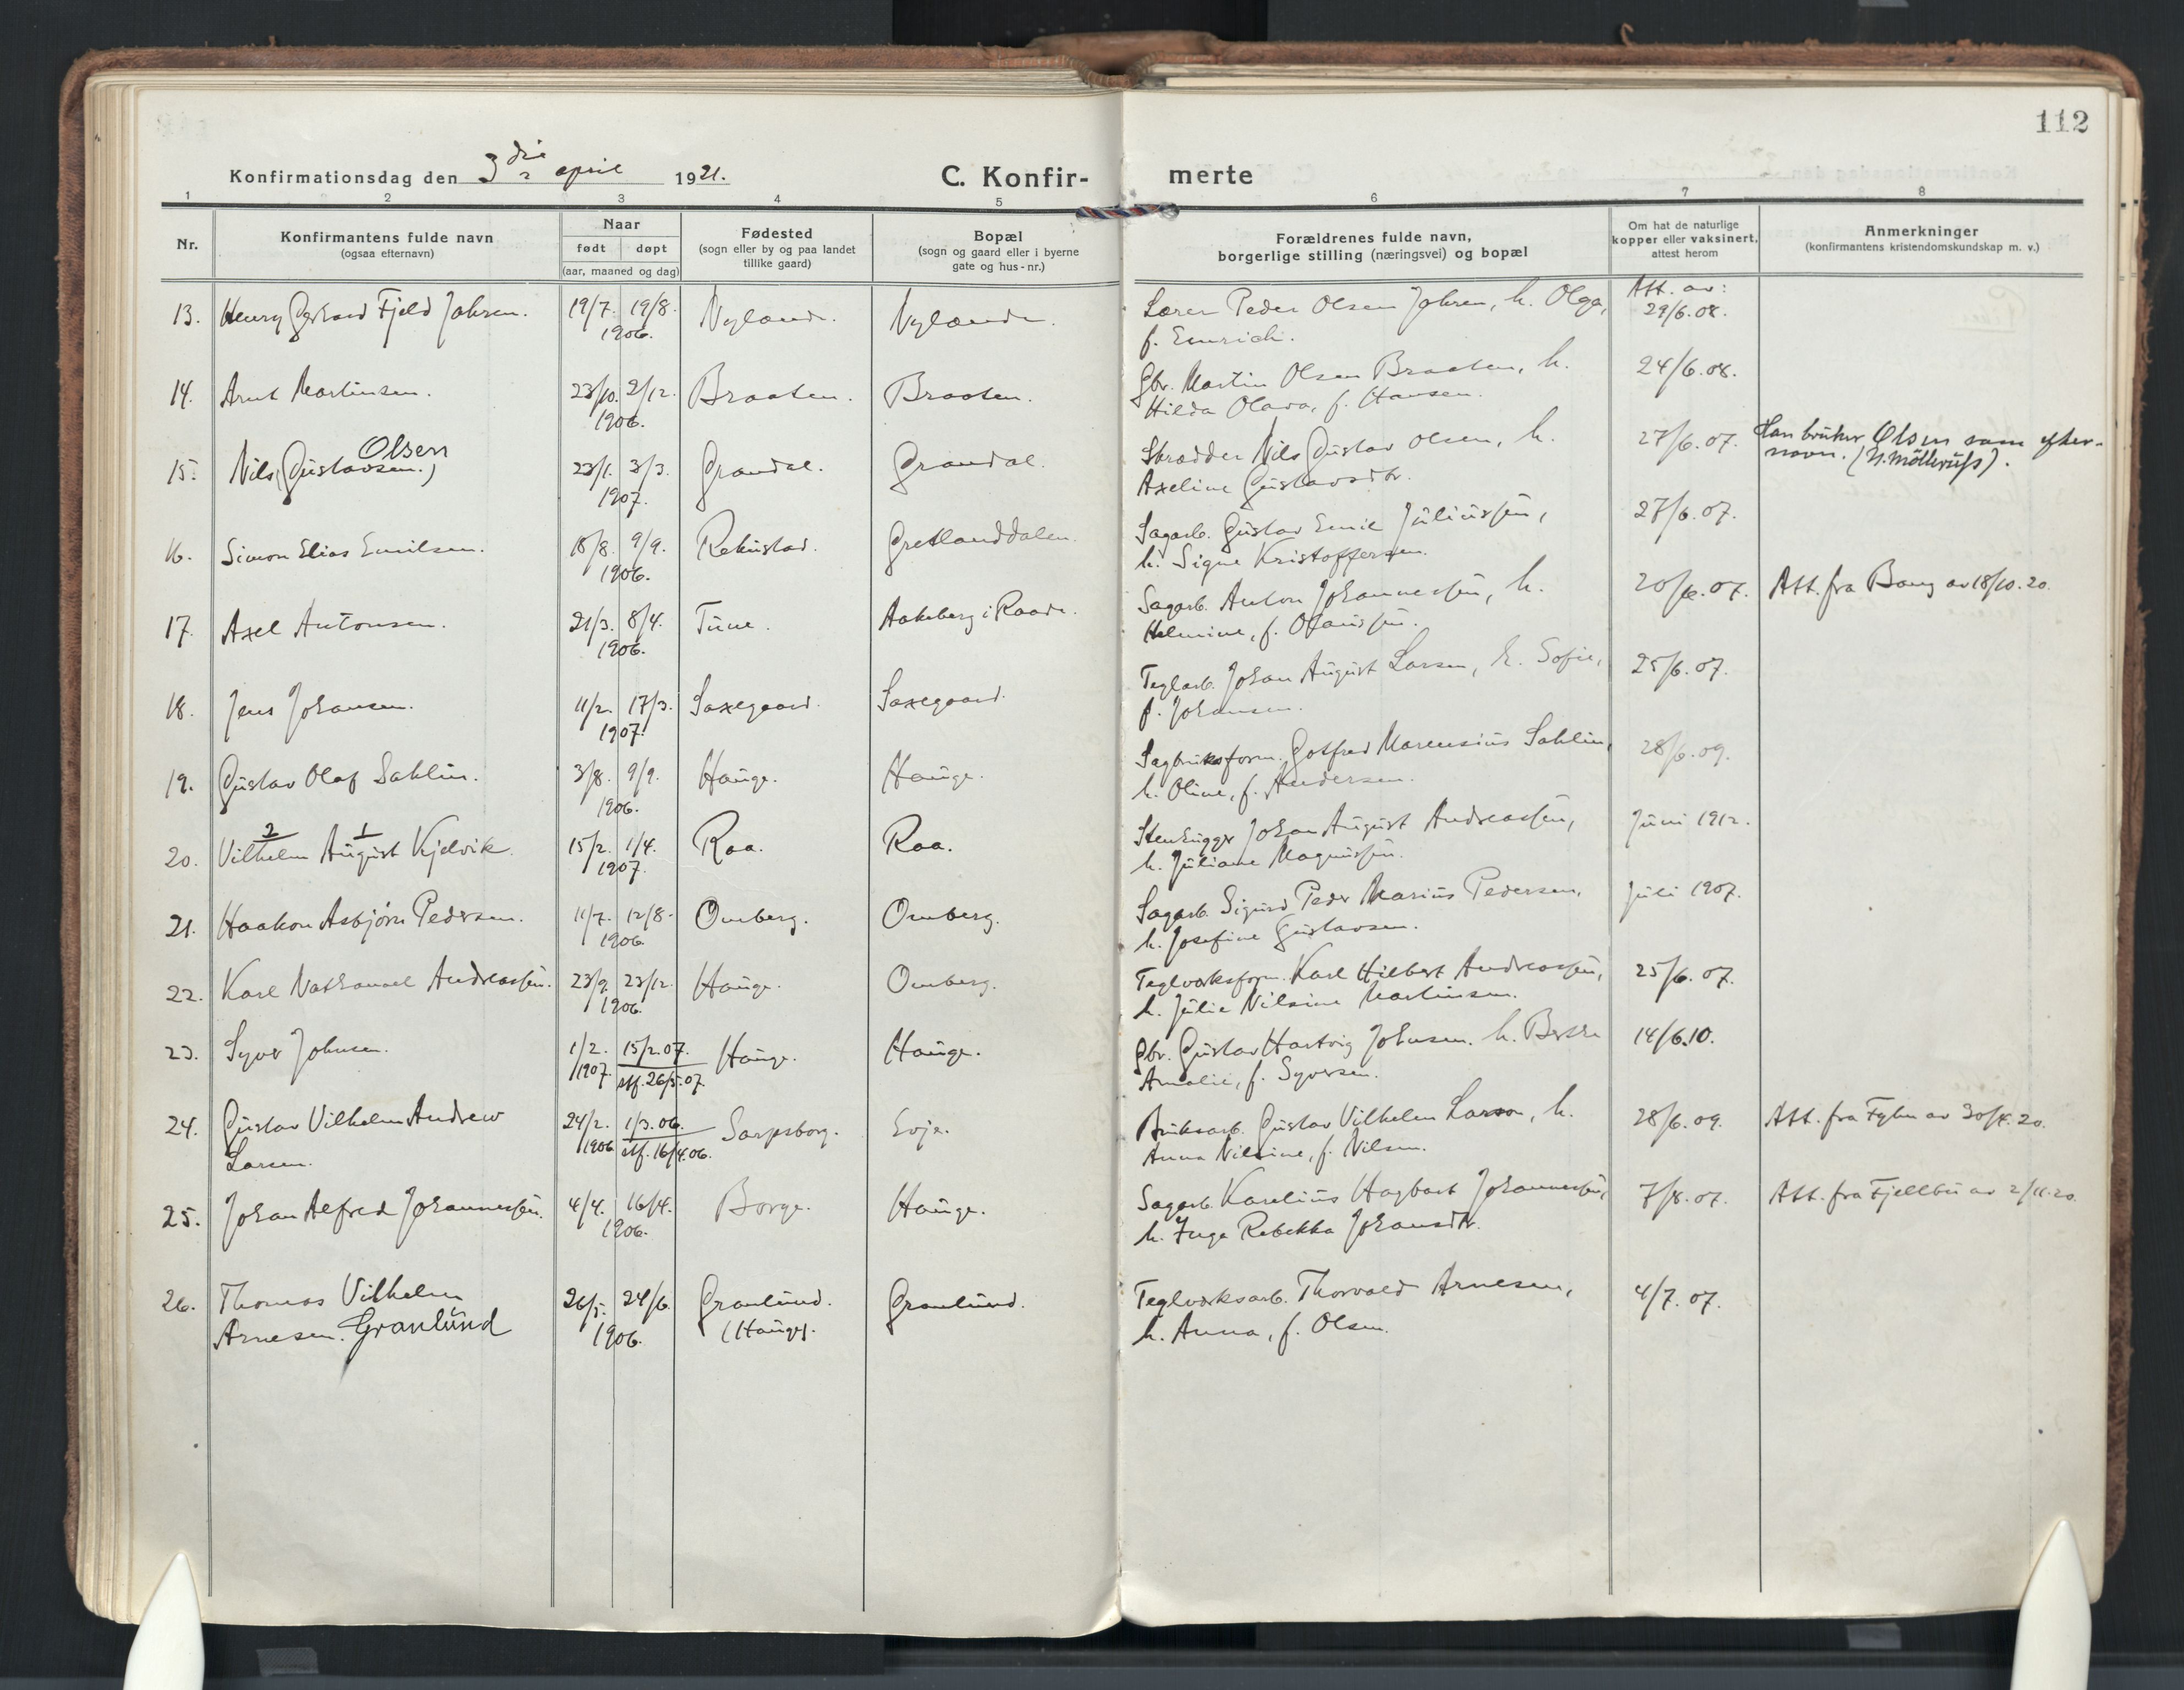 112
Konfirmationsdag den 3die april 1921.
C. Konfir-merte
1 2 3 4 5 6 7 8
Nr.
Konfirmantens fulde navn
(ogsaa efternavn)
Naar
født døpt
(aar, maaned og dag)
Fødested
(sogn eller by og paa landet
tillike gaard)
Bopæl
(sogn og gaard eller i byerne
gate og hus-nr.)
Forældrenes fulde navn,
borgerlige stilling (næringsvei) og bopæl
Om hat de naturlige
kopper eller vaksinert,
attest herom
Anmerkninger
(konfirmantens kristendomskundskap m. v.)
13. Henry Gerhard Fjeld Johren. 19/7. 19/8. 1906. Nylænde. Nylænde. Lærer Peder Olsen Johren, h. Olga, Att. av:
f. Emrich. 29/6.08.
14. Arnt Martinsen. 23/10. 2/12. 1906. Braaten. Braaten. Gbr. Martin Olsen Braaten, h. 24/6.08.
Hilda Olava, f. Hansen.
Olsen
15. Nils (Gustavsen.) 23/1. 3/3. 1907. Grandal. Grandal. Skrædder Nils Gustav Olsen, h. 27/6.07. Han bruker Olsen som efter-
Axeline Gustavsdtr. navn.
16. Simon Elias Emilsen. 18/8. 9/9. 1906. Rekustad. Gretlanddalen. Sagarb. Gustav Emil Juliussen, 27/6.07.
h. Signe Kristoffersen.
17. Axel Antonsen. 21/3. 8/4. 1906. Tune. Aakeberg i Raade. Sagarb. Anton Johannessen, h. 20/6.07. Att. fra Berg av 18/10.20.
Helmine, f. Olaussen.
18. Jens Johansen. 11/2. 17/3. 1907. Saxegaard. Saxegaard. Teglarb. Johan August Larsen, h. Sofie, 25/6.07.
f. Johansen.
19. Gustav Olaf Sahlin. 3/8. 9/9. 1906. Hauge. Hauge. Sagbruksform. Gotfred Marensius Sahlin, 28/6.09.
h. Oline, f. Andersen.
2 1
20. Vilhelm August Kjelvik. 15/2. 1/4. 1907. Raa. Raa. Stenhugger Johan August Andreassen, Juni 1912.
h. Juliane Magnussen.
21. Haakon Asbjørn Pedersen. 11/7. 12/8. 1906. Omberg. Omberg. Sagarb. Sigurd Peder Marius Pedersen, Juli 1907.
h. Josefine Gustavsen.
22. Karl Nathanael Andreassen. 23/9. 23/12. 1906. Hauge. Omberg. Teglverksform. Karl Hilbert Andreassen, 25/6.07.
h. Julie Nilsine Martinsen.
23. Syver Johnsen. 1/2. 1907. 15/2.07. Hauge. Hauge. Gbr. Gustav Hartvig Johnsen. h. Berthe 14/6.10.
stf. 26/5.07. Amalie, f. Syversen.
24. Gustav Vilhelm Andrew 24/2. 1906 1/3.06. Sarpsborg. Evje. Bruksarb. Gustav Vilhelm Larson, h. 28/6.09. Att. fra Fylen av 30/4.20.
Larsen. stf. 16/4.06. Anna Nilsine, f. Nilsen.
25. Johan Alfred Johannessen. 4/4. 16/4. 1906. Borge. Hauge. Sagarb. Karelius Hagbart Johannessen, 7/8.07. Att. fra Fjellbu av 2/11.20.
h. Inga Rebekka Johansdtr.
26. Thomas Vilhelm 26/5. 24/6. 1906. Granlund. Granlund. Teglverksarb. Thorvald Arnesen, 4/7.07.
Arnesen. Granlund (Hauge). h. Anna, f. Olsen.